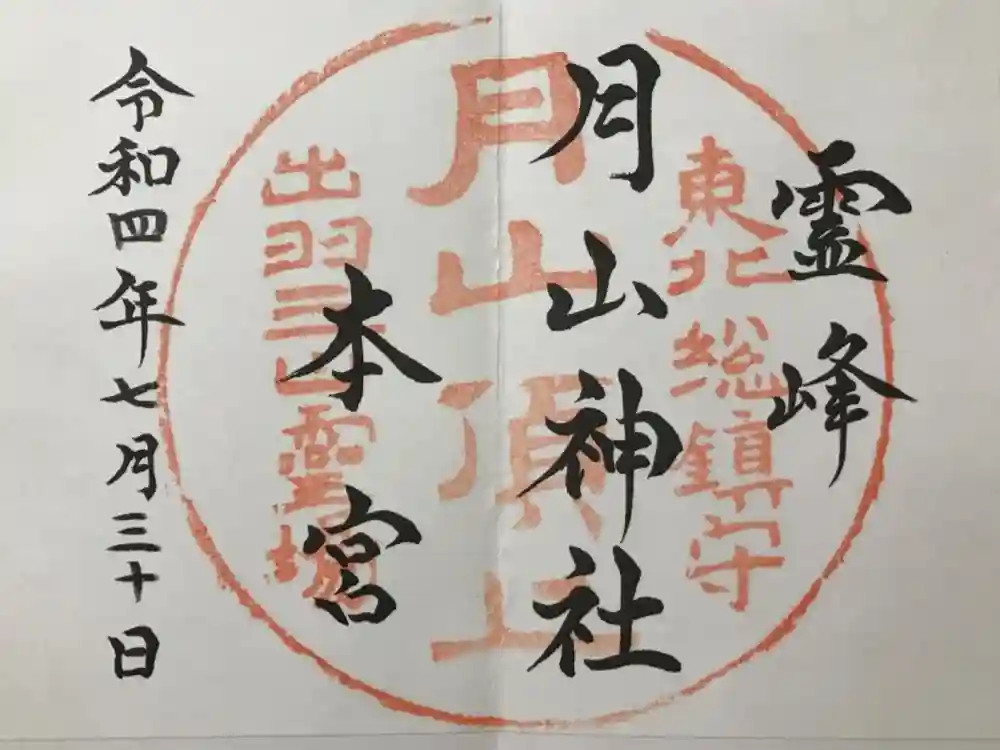 霊峰
月山神社
本宮
令和四年七月三十日
東北総鎮守
月山頂上
出羽三山霊場